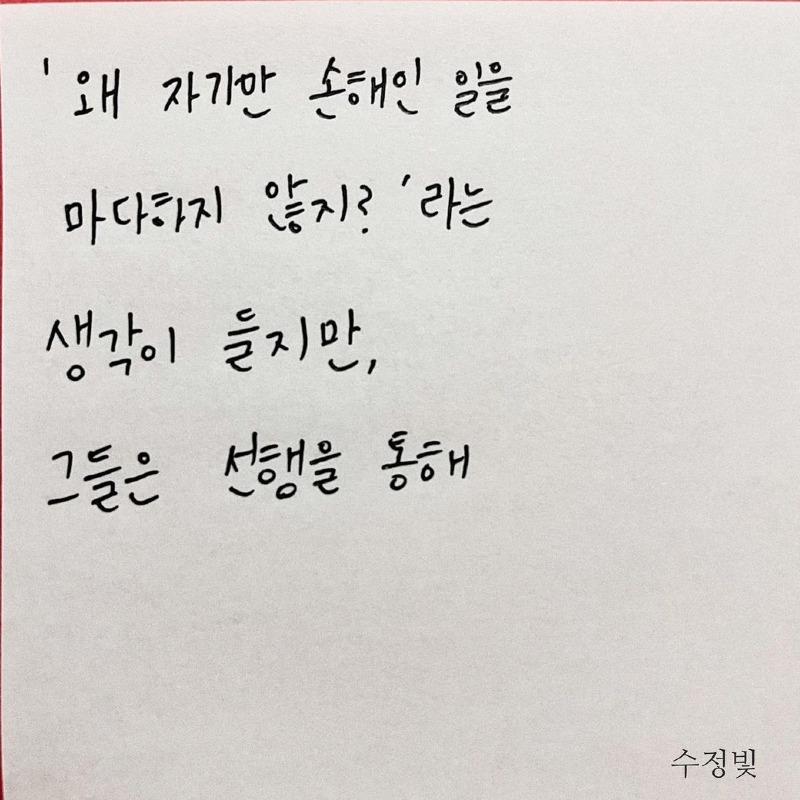 '왜 자기만 손해인 일을
마다하지 않지?'라는
생각이 들지만,
그들은 선행을 통해
수정빛